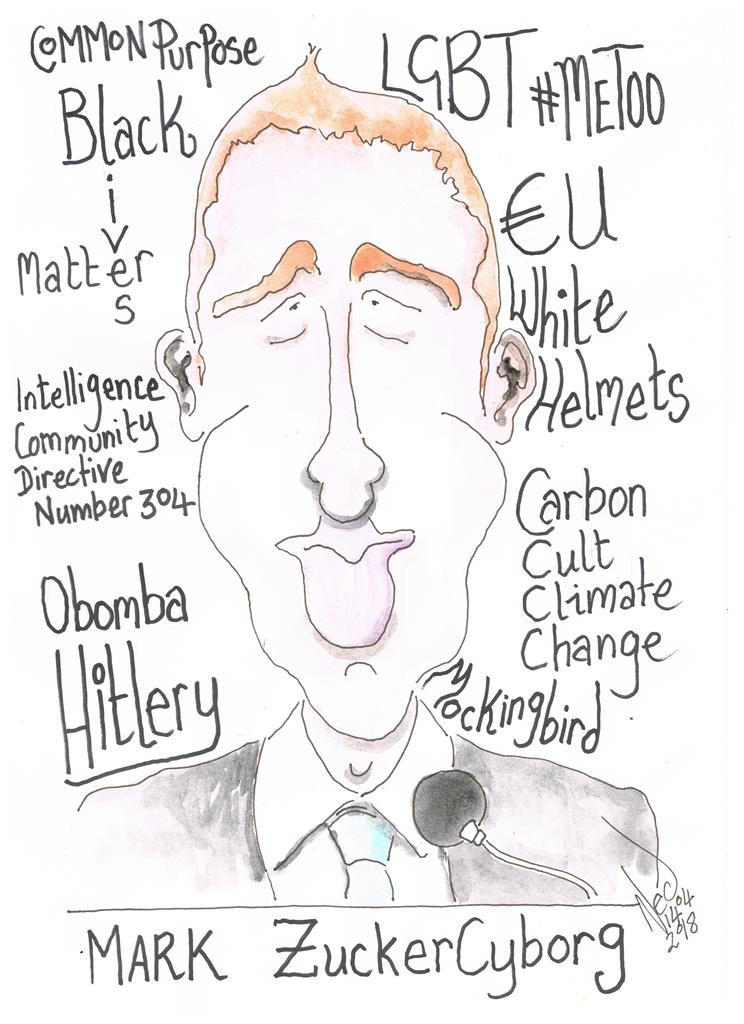 COMMON PurPose
Black
Lives
Matter
Intelligence
Community
Directive
Number 304
Obomba
Hitlery
LGBT #METOO
€U
White
Helmets
Carbon
Cult
Climate
Change
Mockingbird
04
14
2018
MARK ZuckerCyborg